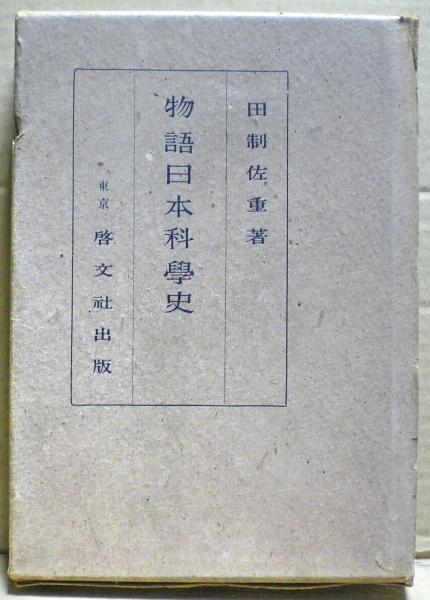 田制佐重著
物語日本科學史
東京 啓文社出版